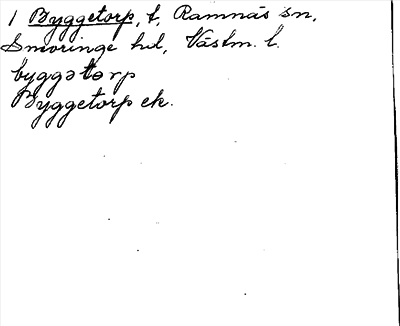 1 Byggetorp, t, Ramnäs sn,
Snevringe hd, Västm. l.
byggətorp
Byggetorp ek.